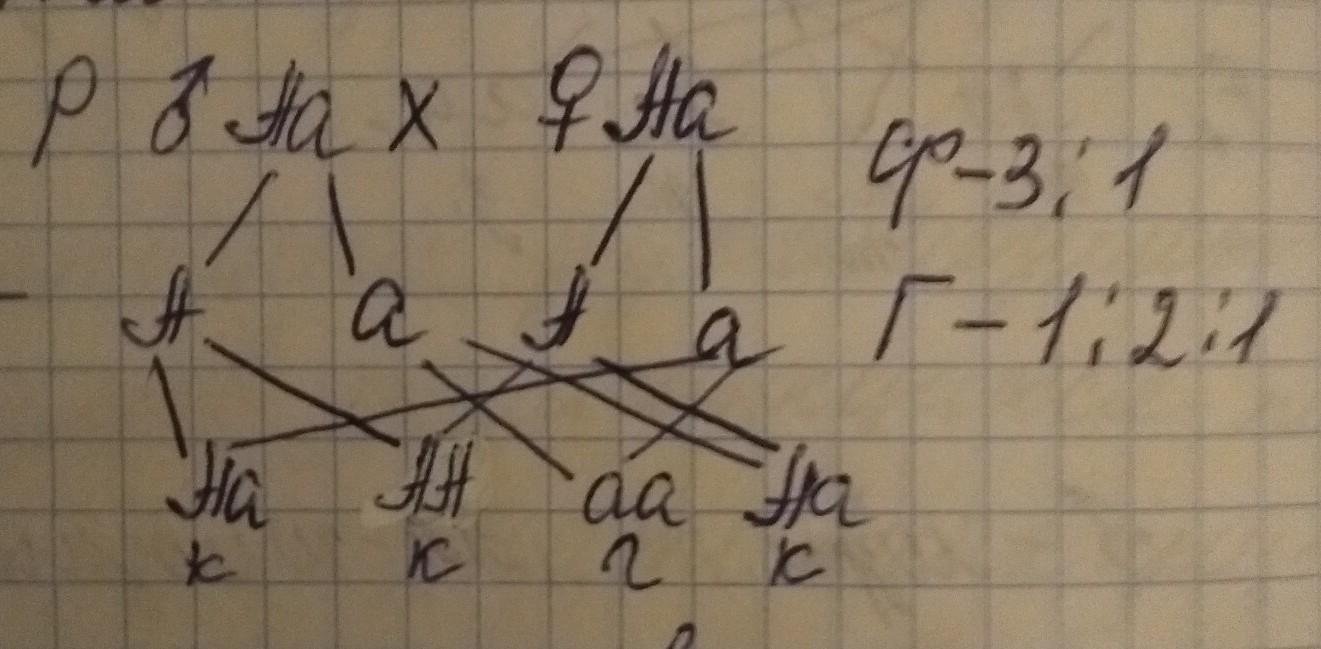 P ♂ Aa X ♀ Aa
Ф-3:1
A a A a
Г-1:2:1
Aa AA aa Aa
к к г к